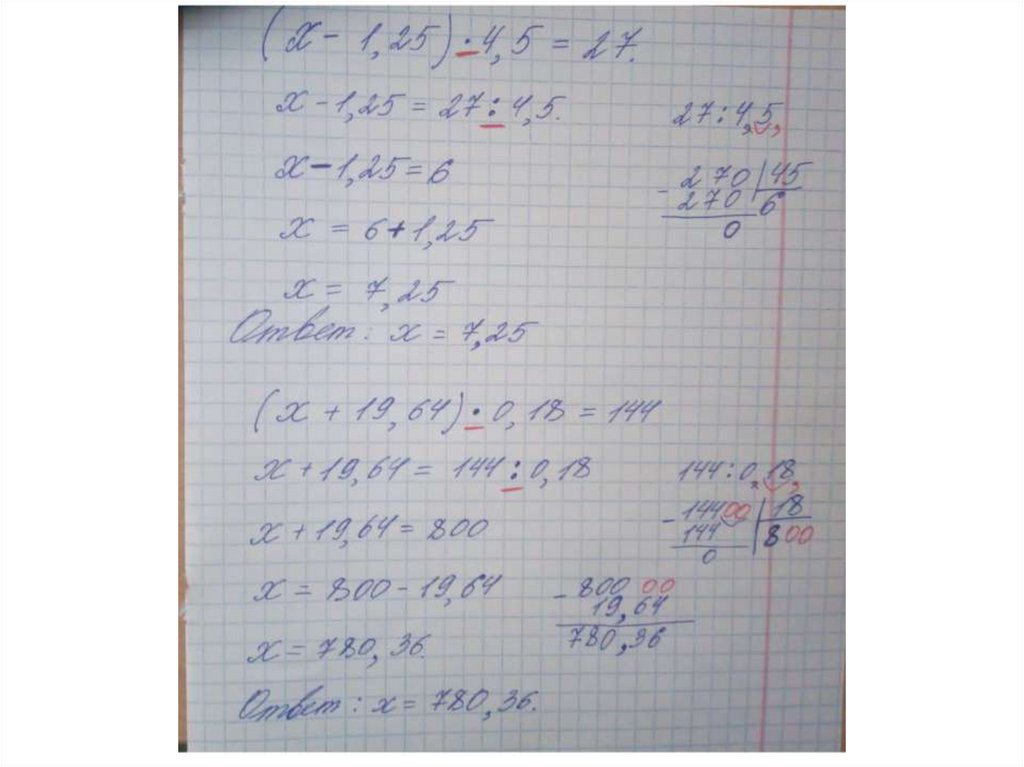 (x - 1,25) · 4,5 = 27.
x - 1,25 = 27 : 4,5.
27 : 4,5,
x - 1,25 = 6
- 270 | 45
270 6
0
x = 6 + 1,25
x = 7,25
Ответ: x = 7,25
(x + 19,64) · 0,18 = 144
x + 19,64 = 144 : 0,18
144 : 0,18,
- 14400 | 18
144 800
0
x + 19,64 = 800
x = 800 - 19,64
- 800 00
19,64
780,36
x = 780,36.
Ответ: x = 780,36.